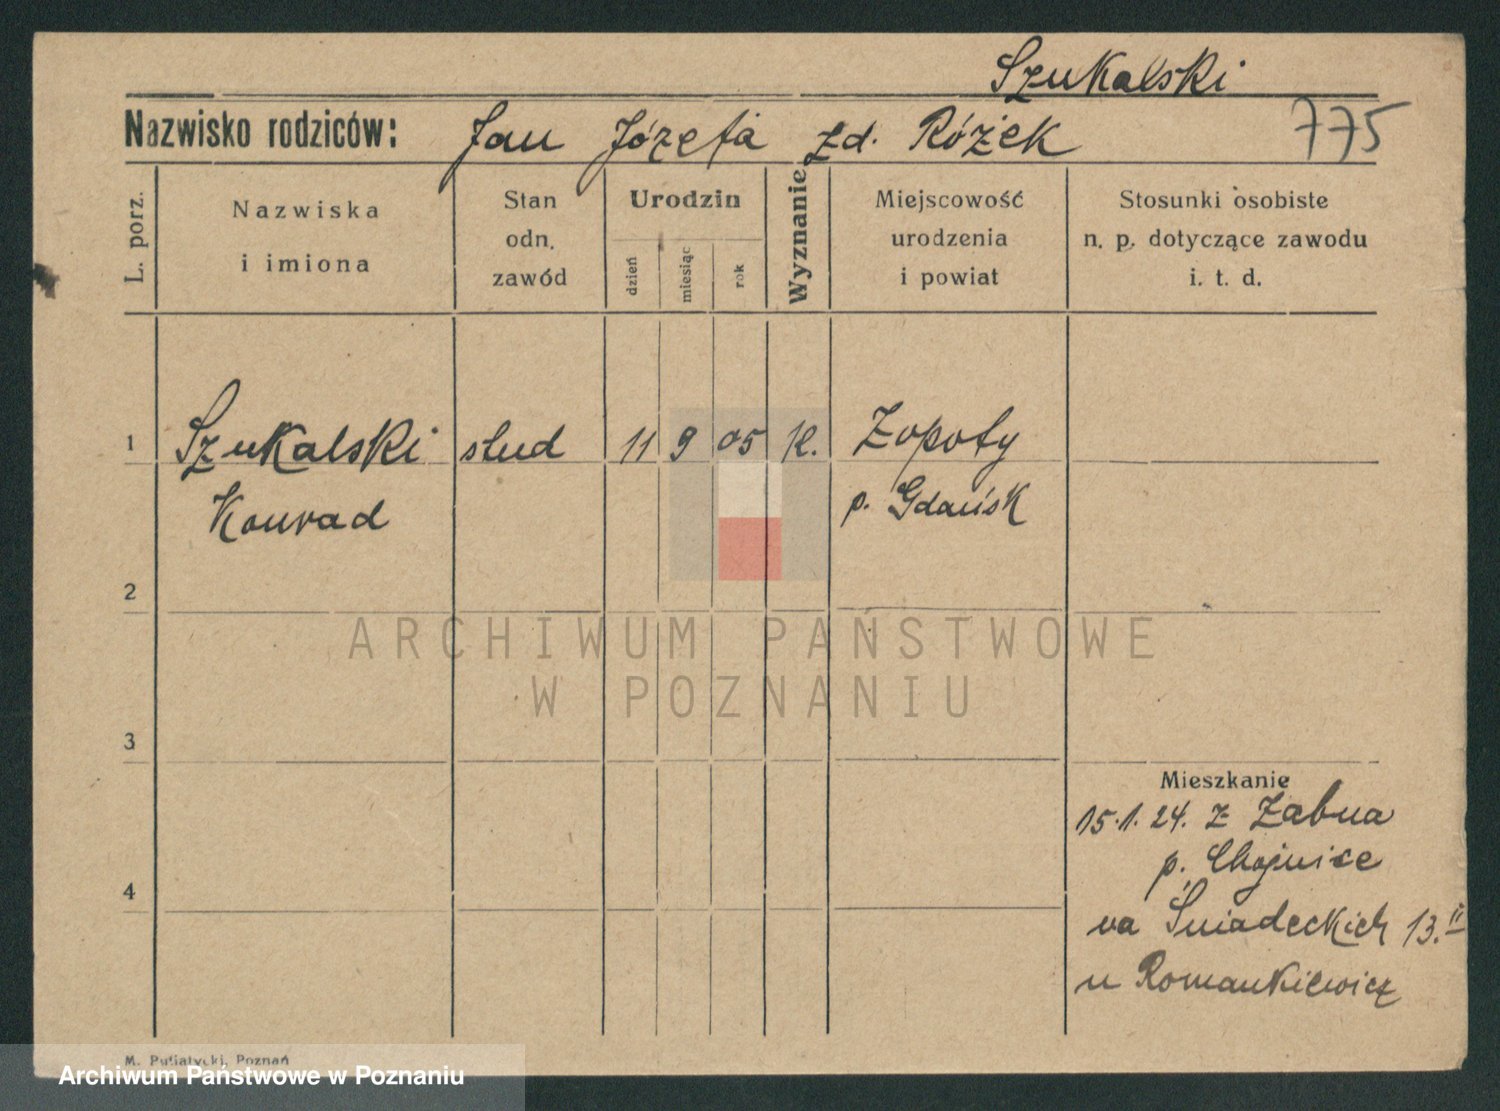 Szukalski
Nazwisko rodziców: Jan Józefa zd. Różek 775
L. porz.
Nazwiska
i imiona
Stan
odn.
zawód
Urodzin
dzień
miesiąc
rok
Wyznanie
Miejscowość
urodzenia
i powiat
Stosunki osobiste
n. p. dotyczące zawodu
i. t. d.
1 Szukalski stud 11 9 05 K. Zopoty
Konrad p. Gdańsk
2
3
4
Mieszkanie
15.1.24. z Żabna
p. Chojnice
na Śniadeckich 13.II
u Romankiewicz
ARCHIWUM PAŃSTWOWE
W POZNANIU
M. Putiatycki, Poznań
Archiwum Państwowe w Poznaniu